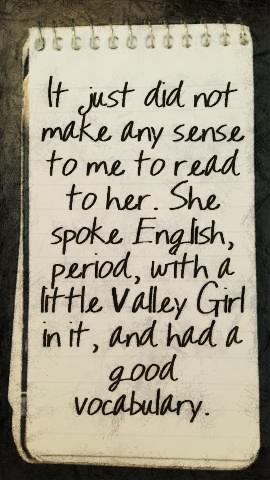 It just did not
make any sense
to me to read
to her. She
spoke English,
period, with a
little Valley Girl
in it, and had a
good
vocabulary.